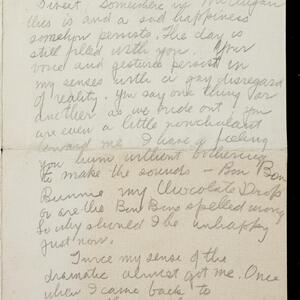 Sweet, Somewhere in Michigan
this is and a sad happiness
somehow persists. The day is
still filled with you. Your
voice and gestures persist in
my senses with a gay disregard
of reality. You say one thing for
another as we ride out, you
are even a little nonchalant
toward me. I have a feeling
you hum without bothering
to make the sounds – Bon Bon
Bunnie my Chocolate Drop
or are the Bon Bons spelled wrong
so why should I be unhappy
just now.
Twice my sense of the
dramatic almost got me. Once
when I came back to